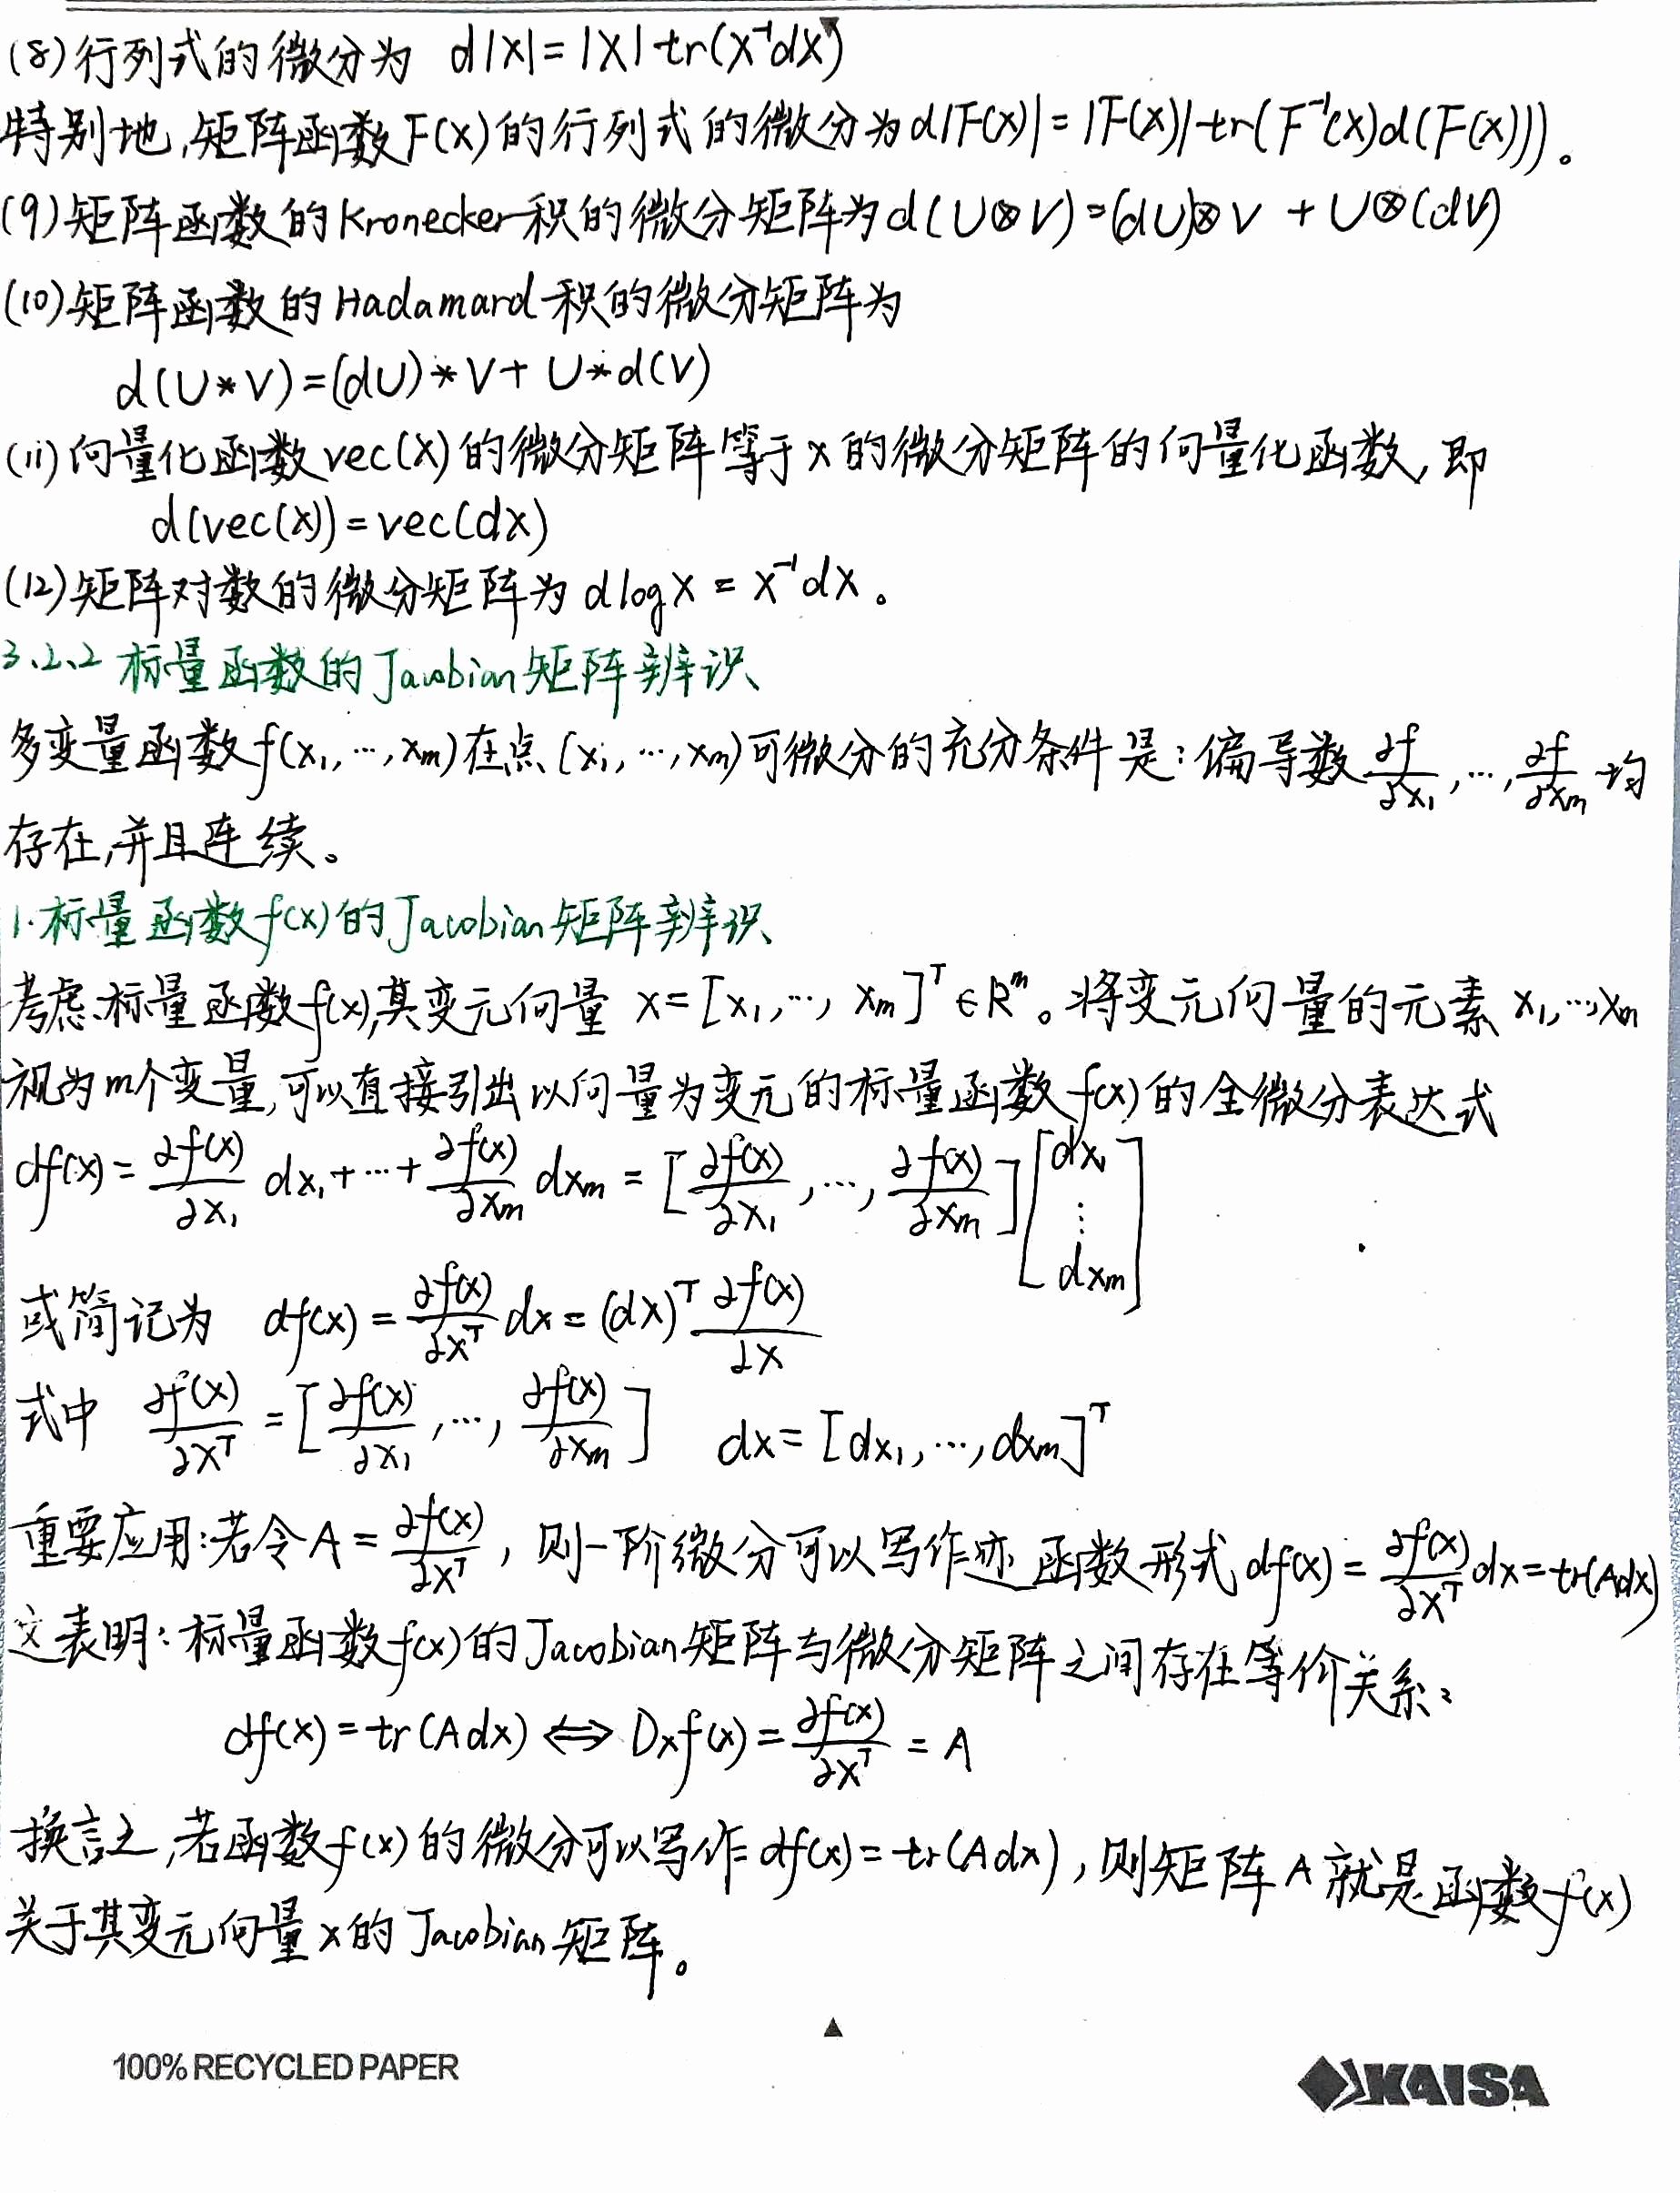 (8)行列式的微分为 d|X|=|X|tr(X⁻¹dX)
特别地,矩阵函数F(X)的行列式的微分为d|F(X)|=|F(X)|tr(F⁻¹(X)d(F(X)))。
(9)矩阵函数的Kronecker积的微分矩阵为d(U⊗V)=(dU)⊗V+U⊗(dV)
(10)矩阵函数的Hadamard积的微分矩阵为
d(U*V)=(dU)*V+U*d(V)
(11)向量化函数vec(X)的微分矩阵等于X的微分矩阵的向量化函数,即
d(vec(X))=vec(dX)
(12)矩阵对数的微分矩阵为dlogX=X⁻¹dX。
3.2.2 标量函数的Jacobian矩阵辨识
多变量函数f(x₁,…,xm)在点(x₁,…,xm)可微分的充分条件是:偏导数∂f/∂x₁,…,∂f/∂xm均
存在,并且连续。
1.标量函数f(x)的Jacobian矩阵辨识
考虑标量函数f(x),其变元向量 x=[x₁,…,xm]ᵀ∈Rᵐ。将变元向量的元素x₁,…,xm
视为m个变量,可以直接引出以向量为变元的标量函数f(x)的全微分表达式
df(x)=∂f(x)/∂x₁ dx₁+…+∂f(x)/∂xm dxm=[∂f(x)/∂x₁,…,∂f(x)/∂xm][dx₁ ⋮ dxm]
或简记为 df(x)=∂f(x)/∂xᵀ dx=(dx)ᵀ ∂f(x)/∂x
式中 ∂f(x)/∂xᵀ=[∂f(x)/∂x₁,…,∂f(x)/∂xm] dx=[dx₁,…,dxm]ᵀ
重要应用:若令A=∂f(x)/∂xᵀ,则一阶微分可以写作迹函数形式df(x)=∂f(x)/∂xᵀ dx=tr(Adx)
这表明:标量函数f(x)的Jacobian矩阵与微分矩阵之间存在等价关系:
df(x)=tr(Adx)⇔Dxf(x)=∂f(x)/∂xᵀ=A
换言之,若函数f(x)的微分可以写作df(x)=tr(Adx),则矩阵A就是函数f(x)
关于其变元向量x的Jacobian矩阵。
100% RECYCLED PAPER
KAISA